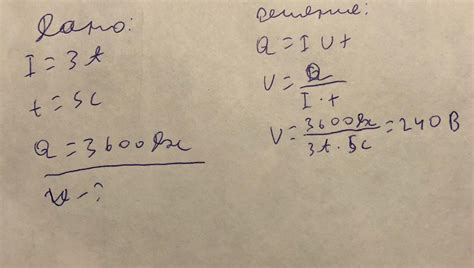 Дано:
I = 3А
t = 5с
Q = 3600Дж
U - ?
Решение:
Q = I U t
U = Q / I · t
U = 3600Дж / 3А · 5с = 240 В